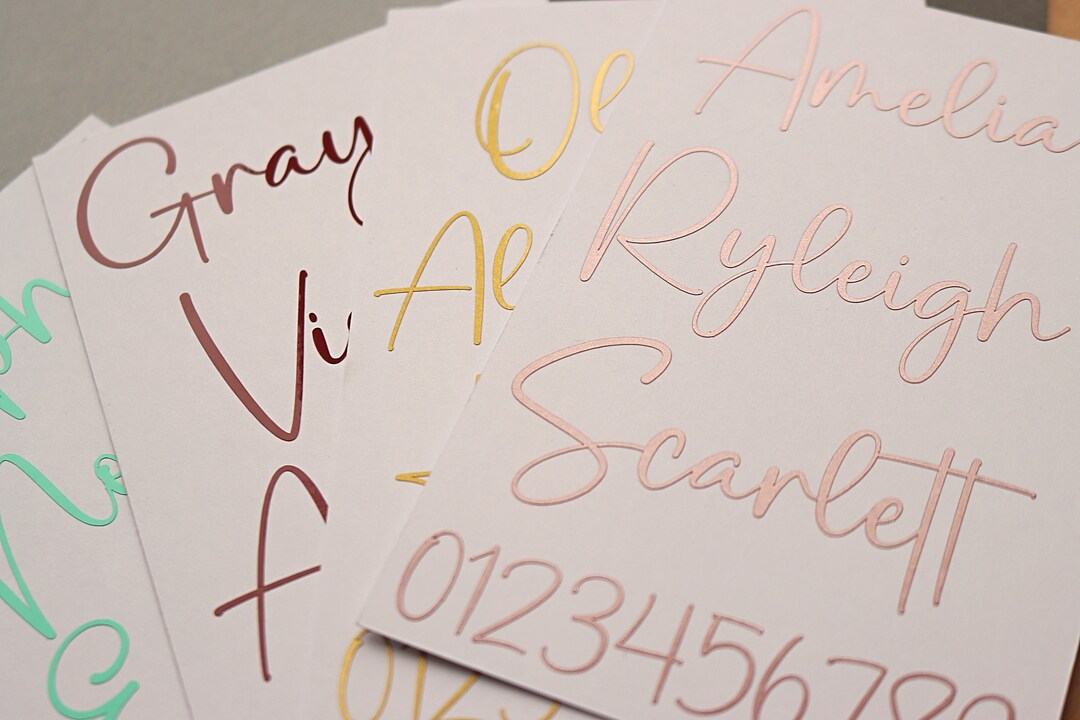 Amelia
Ryleigh
Scarlett
0123456789
Ol
Al
012
Gray
Vi